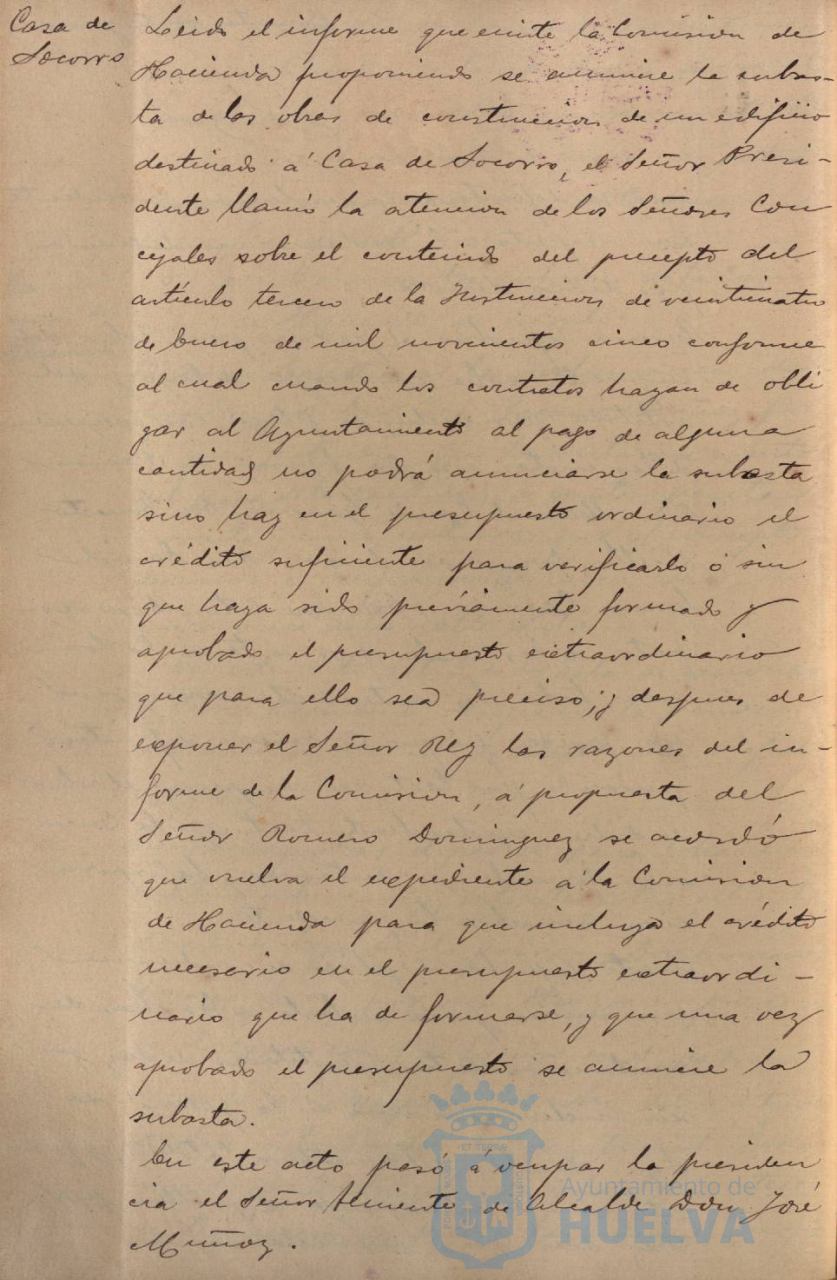 Casa de
Socorro
Leido el informe que emite la Comision de
Hacienda proponiendo se anuncie la subas-
ta de las obras de construccion de un edificio
destinado á Casa de Socorro, el Señor Presi-
dente llamó la atencion de los Señores Con
cejales sobre el contenido del precepto del
artículo tercero de la Instruccion de veinticuatro
de Enero de mil novecientos cinco conforme
al cual cuando los contratos hayan de obli
gar al Ayuntamiento al pago de alguna
cantidad no podrá anunciarse la subasta
sino hay en el presupuesto ordinario el
crédito suficiente para verificarlo ó sin
que haya sido préviamente formado y
aprobado el presupuesto extraordinario
que para ello sea preciso; y despues de
exponer el Señor Rey las razones del in-
forme de la Comision, á propuesta del
Señor Romero Dominguez se acordó
que vuelva el expediente á la Comision
de Hacienda para que incluya el crédito
necesario en el presupuesto extraordi-
nario que ha de formarse, y que una vez
aprobado el presupuesto se anuncie la
subasta.
En este acto pasó á ocupar la presiden
cia el Señor Teniente de Alcalde Don José
Muñoz.
Ayuntamiento de
HUELVA